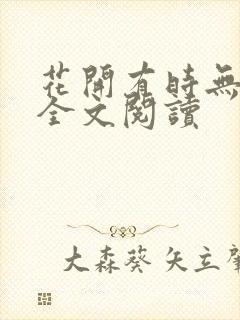 花開有時無
全文閱讀
大森葵 矢立肇